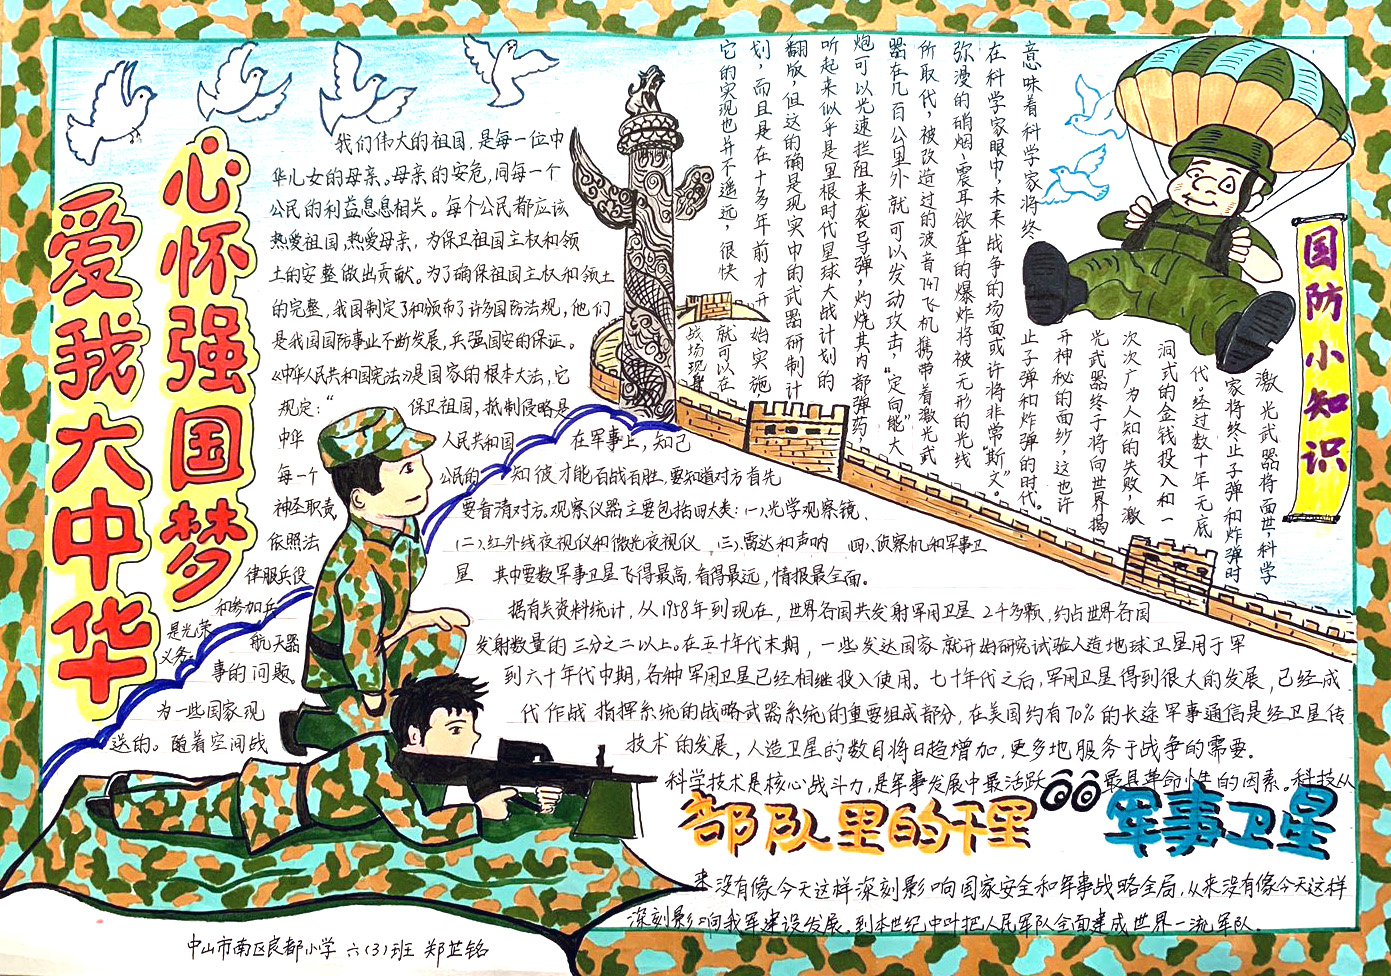 心怀强国梦
爱我大中华
我们伟大的祖国，是每一位中
华儿女的母亲。母亲的安危，同每一个
公民的利益息息相关。每个公民都应该
热爱祖国，热爱母亲，为保卫祖国主权和领
土的完整做出贡献。为了确保祖国主权和领土
的完整，我国制定了和颁布了许多国防法规，他们
是我国国防事业不断发展，兵强国安的保证。
《中华人民共和国宪法》是国家的根本大法，它
规定：“ 保卫祖国，抵制侵略是
中华 人民共和国
每一个 公民的
神圣职责，
依照法
律服兵役
和参加兵
是光荣
义务。
在军事上，知己
知彼才能百战百胜，要知道对方首先
要看清对方。观察仪器主要包括四大类：（一）、光学观察镜、
（二）、红外线夜视仪和微光夜视仪 （三）、雷达和声呐 （四）、侦察机和军事卫
星 其中要数军事卫星飞得最高，看得最远，情报最全面。
据有关资料统计，从1958年到现在，世界各国共发射军用卫星2千多颗，约占世界各国
航天器 发射数量的三分之二以上。在五十年代末期，一些发达国家就开始研究试验人造地球卫星用于军
事的问题。 到六十年代中期，各种军用卫星已经相继投入使用。七十年代之后，军用卫星得到很大的发展，已经成
为一些国家现 代作战指挥系统的战略武器系统的重要组成部分，在美国约有70%的长途军事通信是经卫星传
送的。随着空间战 技术的发展，人造卫星的数目将日趋增加，更多地服务于战争的需要。
部队里的千里
军事卫星
科学技术是核心战斗力，是军事发展中最活跃 最具革命性的因素。科技从
来没有像今天这样深刻影响国家安全和军事战略全局，从来没有像今天这样
深刻影响我军建设发展。到本世纪中叶把人民军队全面建成世界一流军队。
国防小知识
激光武器将面世，科学
家将终止子弹和炸弹时
代。经过数十年无底
洞式的金钱投入和一
次次广为人知的失败，激
光武器终于将向世界揭
开神秘的面纱，这也许
意味着科学家将终
止子弹和炸弹的时代。
在科学家眼中，未来战争的场面或许将非常“斯文”。
弥漫的硝烟、震耳欲聋的爆炸将被无形的光线
所取代，被改造过的波音747飞机携带着激光武
器在几百公里外就可以发动攻击，“定向能”大
炮可以光速拦阻来袭导弹，灼烧其内部弹药，
听起来似乎是里根时代星球大战计划的
翻版，但这的确是现实中的武器研制计
划，而且是在十多年前才开始实施，
它的实现也并不遥远，很快就可以在
战场现身
中山市南区良都小学 六（3）班 郑芷铭